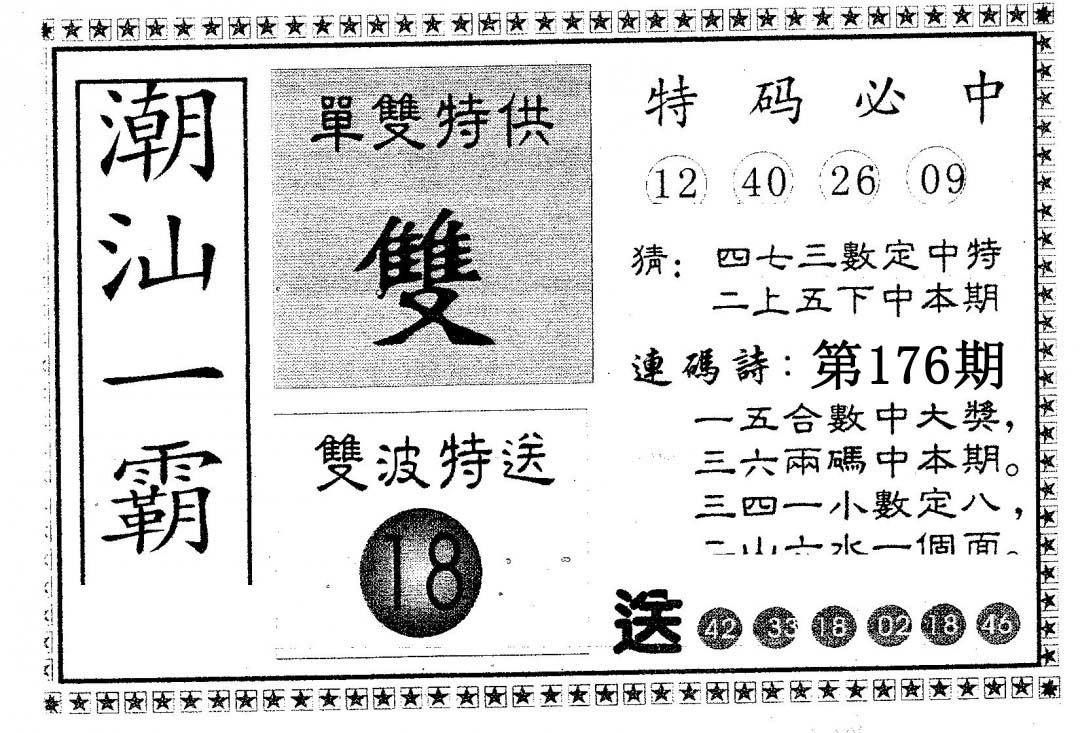 潮汕一霸
單雙特供
雙
雙波特送
18
特码必中
12 40 26 09
猜：四七三數定中特
二上五下中本期
連碼詩：第176期
一五合數中大獎，
三六兩碼中本期。
三四一小數定八，
二山六水一個面。
送 42 33 18 02 18 46